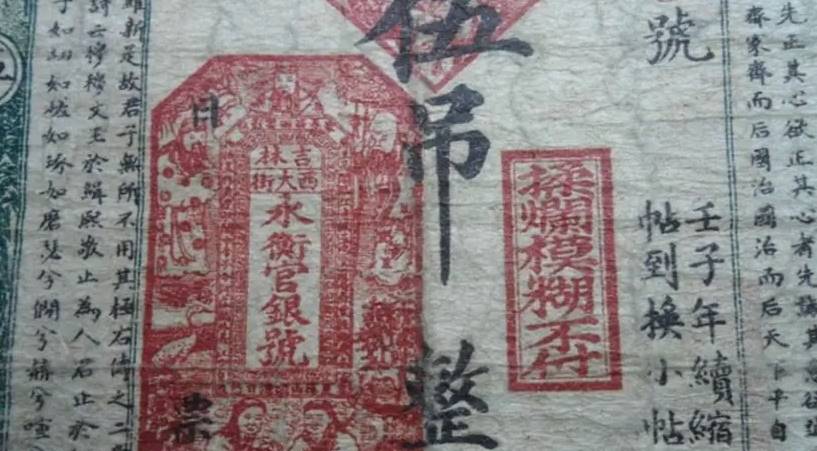 先正其心欲正其心者先誠其意欲誠
齊家齊而后國治國治而后天下平自
號
壬子年續縮
帖到換小帖
揉爛模糊不付
伍吊整
吉林
西大街
永衡官銀號
日
票
維新是故君子無所不用其極右傳之二
詩云穆穆文王於緝熙敬止為人君止於
子如切如磋如琢如磨瑟兮僩兮赫兮喧